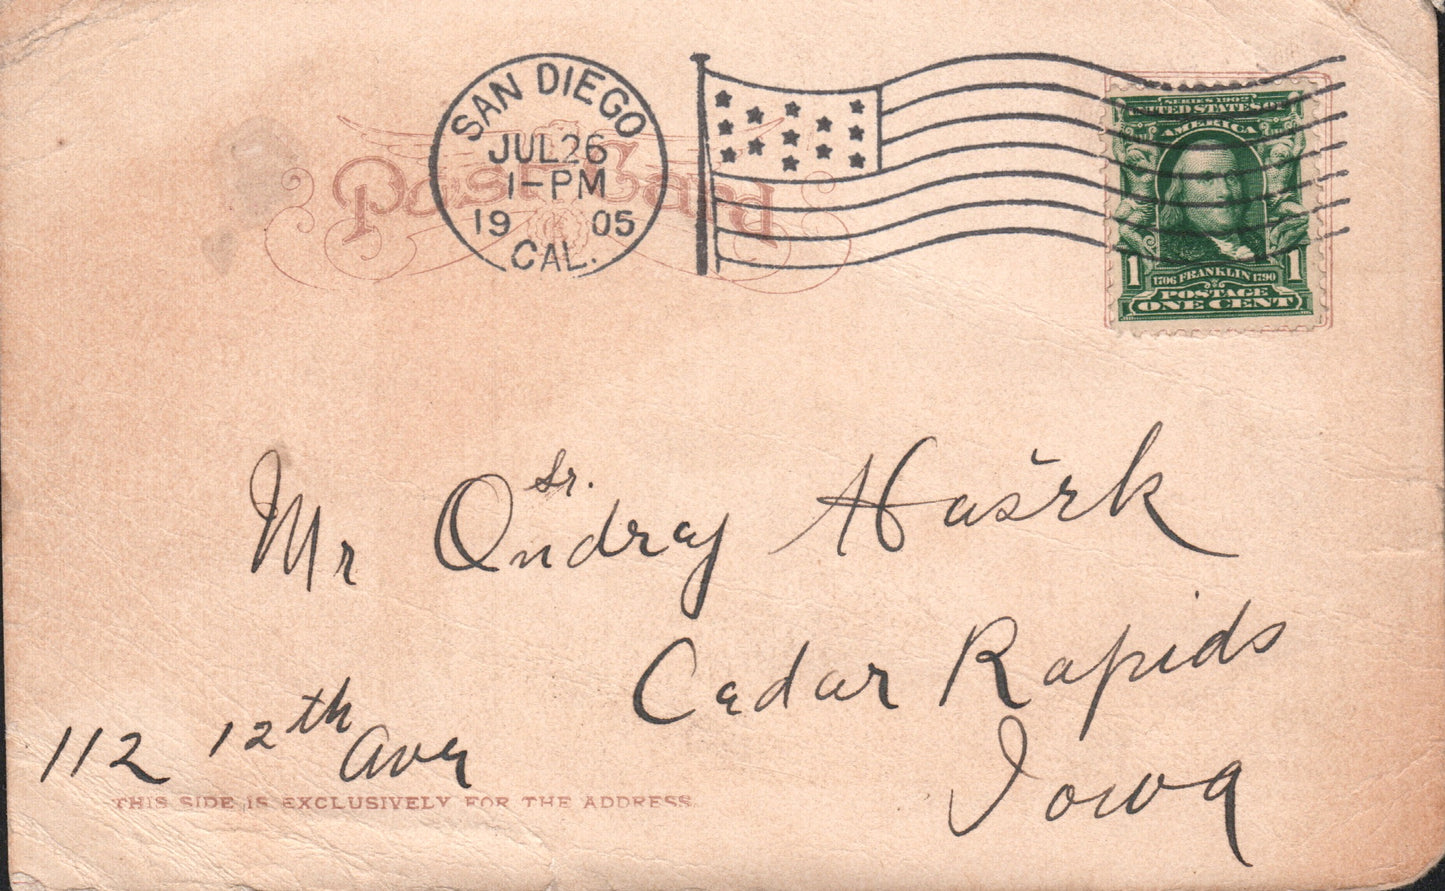 SAN DIEGO
JUL 26
1-PM
19 05
CAL.
Post Card
SERIES 1902
UNITED STATES OF
AMERICA
1 1706 FRANKLIN 1790 1
POSTAGE
ONE CENT
Mr Ondrej Sr. Hašrk
Cedar Rapids
Iowa
112 12th Ave
THIS SIDE IS EXCLUSIVELY FOR THE ADDRESS.